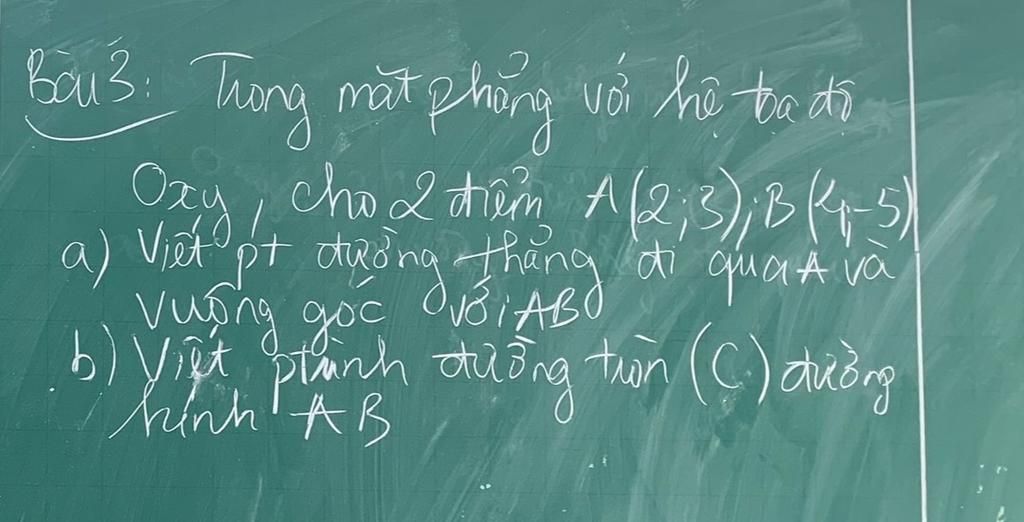 Bài 3: Trong mặt phẳng với hệ tọa độ
Oxy, cho 2 điểm A(2;3); B(4;-5)
a) Viết pt đường thẳng đi qua A và
vuông góc với AB
b) Viết ptrình đường tròn (C) đường
kính AB